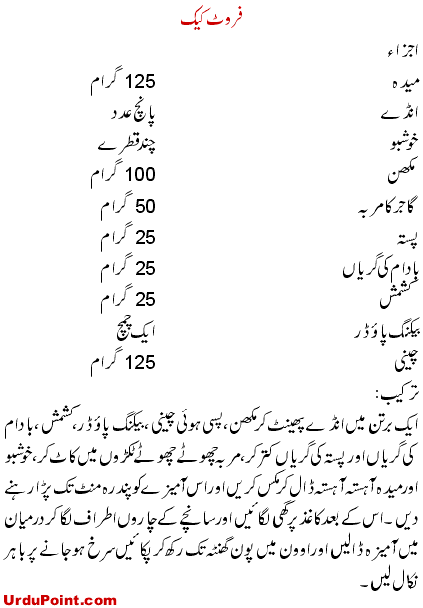 فروٹ کیک
اجزاء
میدہ 125 گرام
انڈے پانچ عدد
خوشبو چند قطرے
مکھن 100 گرام
گاجر کا مربہ 50 گرام
پستہ 25 گرام
بادام کی گریاں 25 گرام
کشمش 25 گرام
بیکنگ پاؤڈر ایک چمچ
چینی 125 گرام
ترکیب:
ایک برتن میں انڈے پھینٹ کر مکھن، پسی ہوئی چینی، بیکنگ پاؤڈر، کشمش، بادام
کی گریاں اور پستہ کی گریاں کتر کر، مربہ چھوٹے چھوٹے ٹکڑوں میں کاٹ کر، خوشبو
اور میدہ آہستہ آہستہ ڈال کر مکس کریں اور اس آمیزے کو پندرہ منٹ تک پڑا رہنے
دیں۔ اس کے بعد کاغذ پر گھی لگائیں اور سانچے کے چاروں اطراف لگا کر درمیان
میں آمیزہ ڈالیں اور اوون میں پون گھنٹہ تک رکھ کر پکائیں سرخ ہو جانے پر باہر
نکال لیں۔
UrduPoint.com